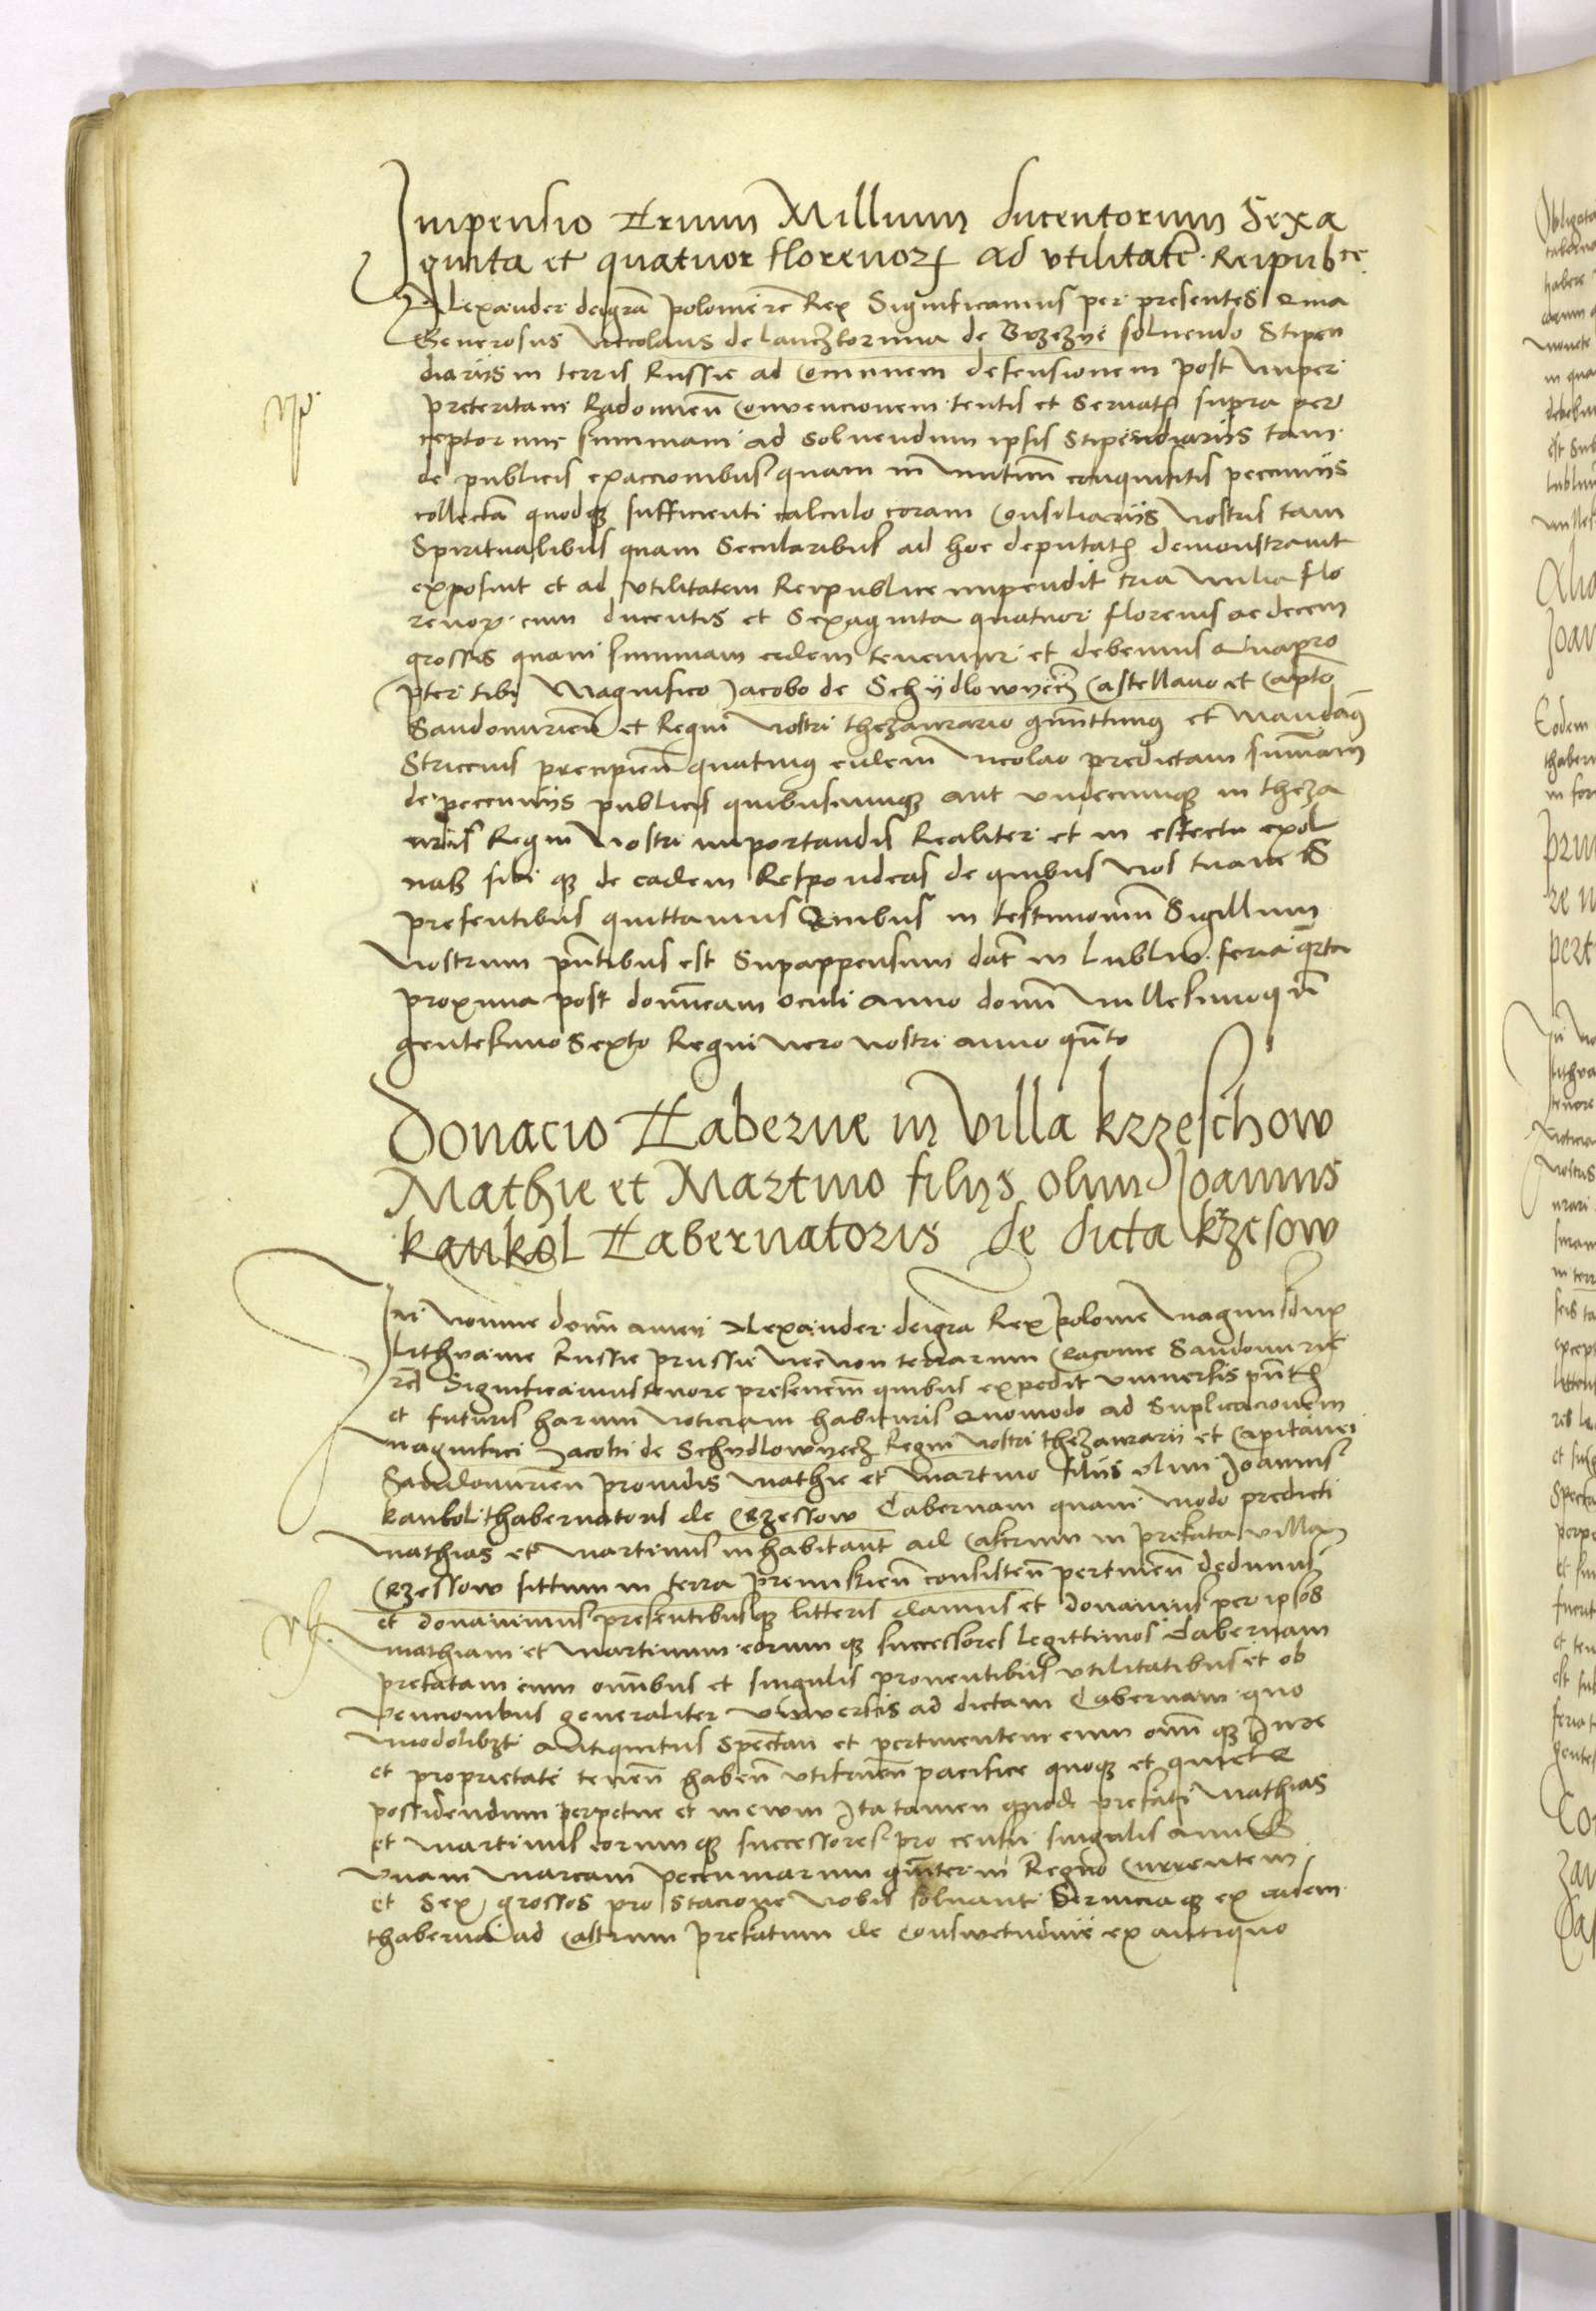 Impensio Trium Millium ducentorum Sexa
ginta et quatuor florenorꝝ ad vtilitatē Reipubce
Alexander deigrā polonie rc Rex Significamus per presentes Quia
Generosus Nicolaus de lanczkoruna de Brzezye soluendo Stipen
diariis in terris Russie ad Comunem defensionem post nuper
preteritam Radomieñ Convencionem tentis et Seruatis supra per
ceptorum summam ad soluendum ipsis Stipendiariis tam
de publicis exaccionibus quam in mutuū conquisitis pecuniis
collectā quodqꝫ sufficienti calculo coram Consiliariis Nostris tam
Spiritualibus quam Secularibus ad hoc deputatis demonstrauit
exposuit et ad vtilitatem Reipublice impendit tria milia flo
renoꝝ cum ducentis et Sexaginta quatuor florenis ac decem
grossis quam summam eidem tenemur et debemus Quapro
pter tibi Magnifico Jacobo de Schydlowyecz Castellano et Capto
Sandomirieñ et Regni Nostri thezaurario et mandamꝰ
Striccius precipieñ quatinus eidem Nicolao predictam summam
de pecuniis publicis quibuscumqꝫ aut vndecumqꝫ in theza
uris Regni Nostri importandis Realiter et in effectu exol
uas sibi qꝫ de eadem Respondeas de quibus Nos tuam S
presentibus quittamus Quibus in testimoniū Sigillum
Nostrum pn̄tibus est Supappensum dat̄ in lublin feria qrta
proxima post dominicam oculi anno domī Millesimoqūi
gentesimo Sexto Regni vero nostri anno qūto
Donacio Taberne in Villa krzeschow
Mathie et Martino filiis olim Joannis
kankol Tabernatoris de dicta krzesow
In Nomine domī amen Alexander deigrā Rex polonie Magnus dux
lithuanie Russie prussie necnon terrarum Cracouie Sandomirie
rc Significamus tenore presencium quibus expedit vniuersis pn̄tibus
et futuris harum Noticiam habituris Quomodo ad Suplicacionem
Magnifici Jacobi de Schydlowyecz Regni Nostri thezaurarii et Capitanei
Sandomirieñ prouidis Mathie et Martino filiis olim Joannis
kankol thabernatoris de Crzessow Tabernam quam modo predicti
Mathias et Martinus inhabitant ad Castrum in prefata villa
Crzessow sittum in terra premislieñ consisteñ pertineñ dedimus
et donauimus presentibusqꝫ litteris damus et donamus per ipsos
Mathiam et Martinum eorum qꝫ successores legittimos Tabernam
prefatam cum omībus et singulis prouentibus vtilitatibus et ob
vencionibus generaliter vniuersis ad dictam Tabernam quo
modolibꝫt antiquitus Spectañ et pertinentem cum omī qꝫ Jure
et proprietate teneñ habeñ vtifrueñ pacifice quoqꝫ et quiete
possidendum perpetue et in ewm Ita tamen quod prefati Mathias
et Martinus eorum qꝫ successores pro censu singulis annis
vnam marcam pecuniarum in Regno Currentem
et Sex grossos pro stacione nobis soluant Seruiciaqꝫ ex eadem
thaberna ad Castrum prefatum de Conswetudine ex antiquo